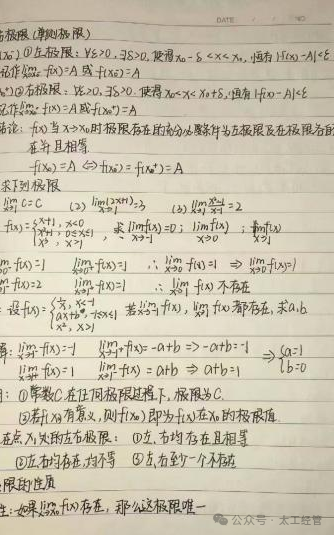 DATE
极限(单侧极限)
①左极限:∀ε>0,∃δ>0,使得x₀-δ<x<x₀,恒有|f(x)-A|<ε
记作lim f(x)=A 或f(x₀⁻)=A
②右极限:∀ε>0,∃δ>0,使得x₀<x<x₀+δ,恒有|f(x)-A|<ε
记作lim f(x)=A 或f(x₀⁺)=A
结论:f(x)当x→x₀时极限存在的充分必要条件为左极限及右极限各自
存在并且相等
f(x₀⁻)=A ⇔ f(x₀⁺)=A
求下列极限
lim C=C (2) lim(2x+1)=3 (3) lim x²-1/x-1=2
f(x)={x+1, x<0
x²+1, 0≤x≤1
x³, x>1 求lim f(x)=0; lim f(x); lim f(x)
f(x)=1 lim f(x)=1 ∴ lim f(x)=1 ⇒ lim f(x)=1
f(x)=2 lim f(x)=1 ∴ lim f(x) 不存在
设f(x)={ x<-1
ax+b, -1≤x≤1
x², x>1 若lim f(x), lim f(x)都存在,求a,b.
解:lim f(x)=-1 lim f(x)=-a+b ⇒ -a+b=-1
lim f(x)=1 lim f(x)=a+b ⇒ a+b=1 ⇒{a=1
b=0
①常数C在任何极限过程下,极限为C.
②若f(x₀)有意义,则f(x₀)即为f(x)在x₀的极限值
在点x₀处的左右极限:①左、右均存在且相等
②左、右均存在,均不等 ③左、右至少一个不存在
极限的性质
性:如果lim f(x)存在,那么这极限唯一
公众号·太工经管